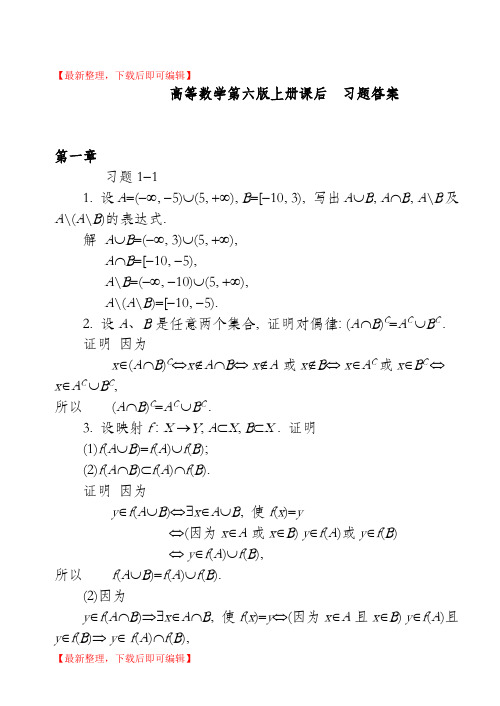 【最新整理，下载后即可编辑】
高等数学第六版上册课后 习题答案
第一章
习题 1−1
1. 设 A=(−∞, −5)∪(5, +∞), B=[−10, 3), 写出 A∪B, A∩B, A\B 及
A\(A\B)的表达式.
解 A∪B=(−∞, 3)∪(5, +∞),
A∩B=[−10, −5),
A\B=(−∞, −10)∪(5, +∞),
A\(A\B)=[−10, −5).
2. 设 A、B 是任意两个集合, 证明对偶律: (A∩B)^C=A^C∪B^C.
证明 因为
x∈(A∩B)^C⇔x∉A∩B⇔ x∉A 或 x∉B⇔ x∈A^C 或 x∈B^C ⇔
x∈A^C∪B^C,
所以 (A∩B)^C=A^C∪B^C.
3. 设映射 f : X →Y, A⊂X, B⊂X . 证明
(1)f(A∪B)=f(A)∪f(B);
(2)f(A∩B)⊂f(A)∩f(B).
证明 因为
y∈f(A∪B)⇔∃x∈A∪B, 使 f(x)=y
⇔(因为 x∈A 或 x∈B) y∈f(A)或 y∈f(B)
⇔ y∈f(A)∪f(B),
所以 f(A∪B)=f(A)∪f(B).
(2)因为
y∈f(A∩B)⇒∃x∈A∩B, 使 f(x)=y⇔(因为 x∈A 且 x∈B) y∈f(A)且
y∈f(B)⇒ y∈ f(A)∩f(B),
【最新整理，下载后即可编辑】